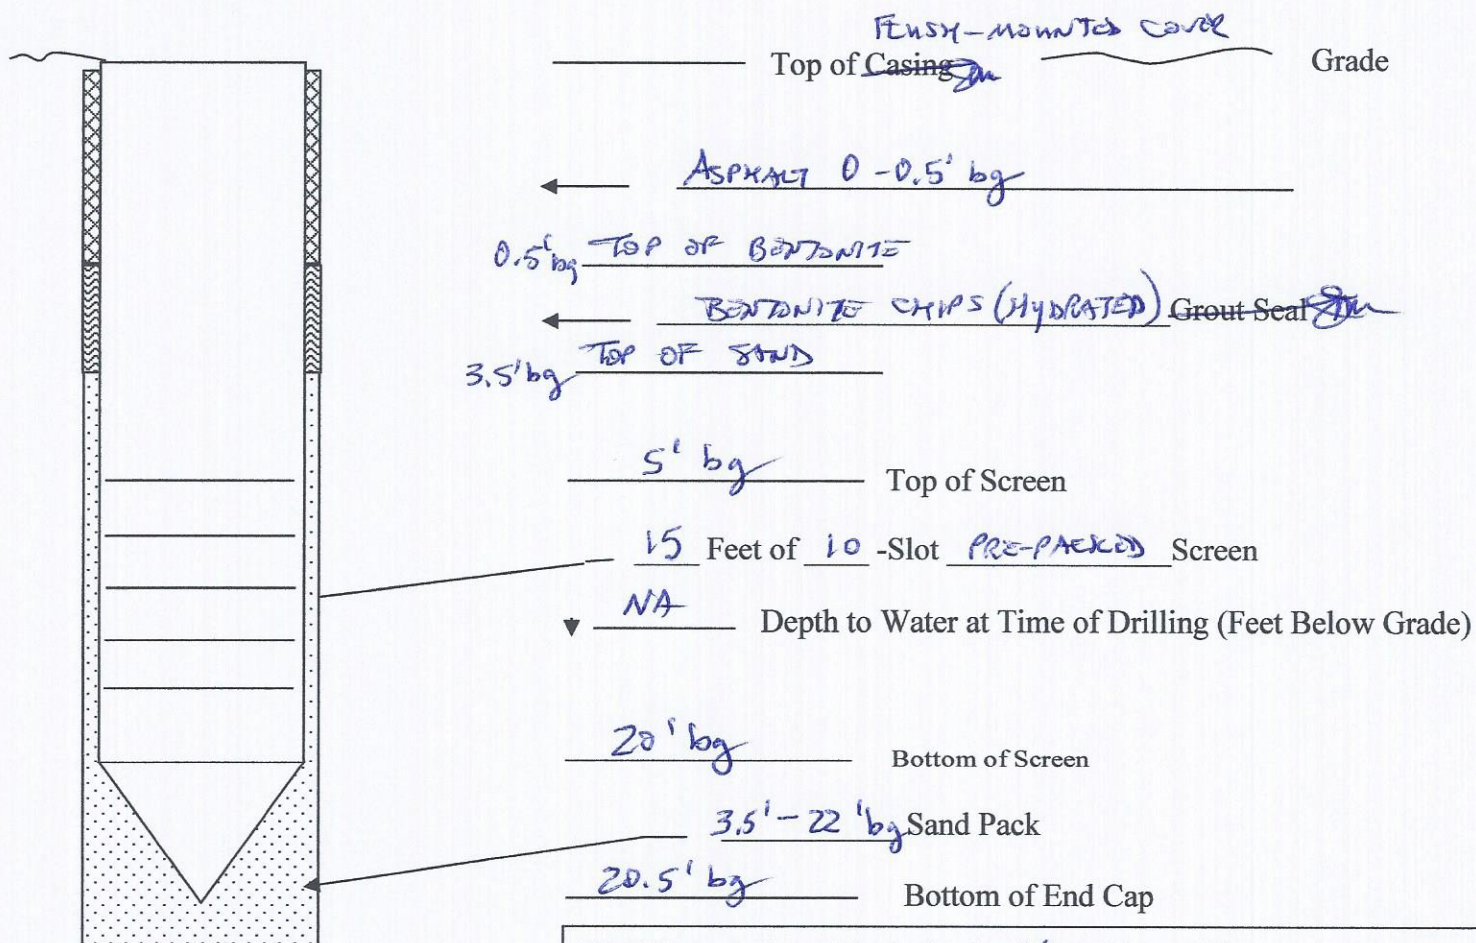 FLUSH-MOUNTED COVER
Top of Casing Grade
ASPHALT 0-0.5' bg
0.5' bg TOP OF BENTONITE
BENTONITE CHIPS (HYDRATED) Grout Seal
3.5' bg TOP OF SAND
5' bg Top of Screen
15 Feet of 10 -Slot PRE-PACKED Screen
NA Depth to Water at Time of Drilling (Feet Below Grade)
20' bg Bottom of Screen
3.5'-22' bg Sand Pack
20.5' bg Bottom of End Cap